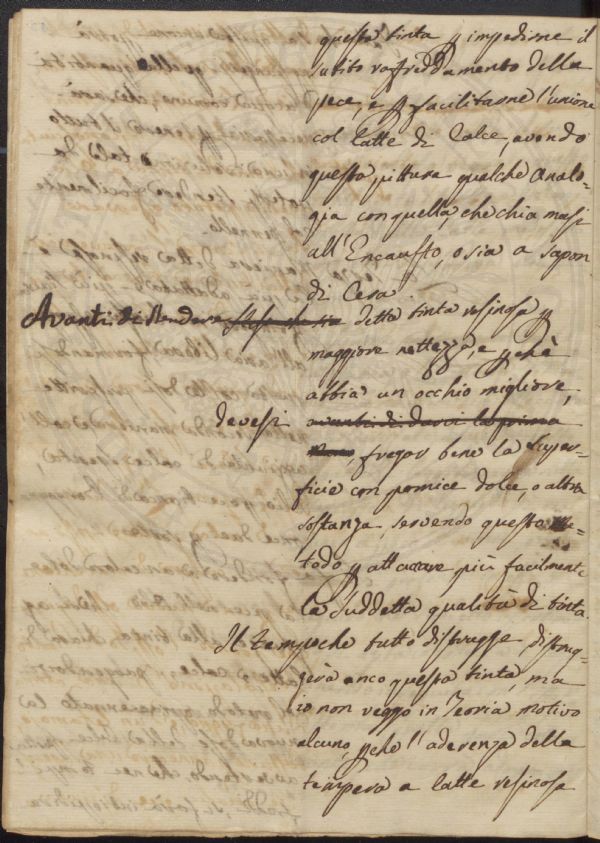 questa tinta p impedirne il
subito raffreddamento della
pece, e p facilitarne l'unione
col latte di calce, avendo
questa pittura qualche analo-
gia con quella, che chiamasi
all'Encausto, o sia a sapon
di Cera.
Avanti di stendere detta tinta resinosa p
maggiore nettezza, e pchè
abbia un occhio migliore,
devesi avanti di darci la prima
fregar bene la super-
ficie con pomice dolce, o altra
sostanza, servendo questo me-
todo p attaccare più facilmente
la suddetta qualità di tinta.
Il tempo che tutto distrugge distrug-
gerà anco questa tinta, ma
io non veggo in Teoria motivo
alcuno, pche l'aderenza della
tempera a latte resinosa